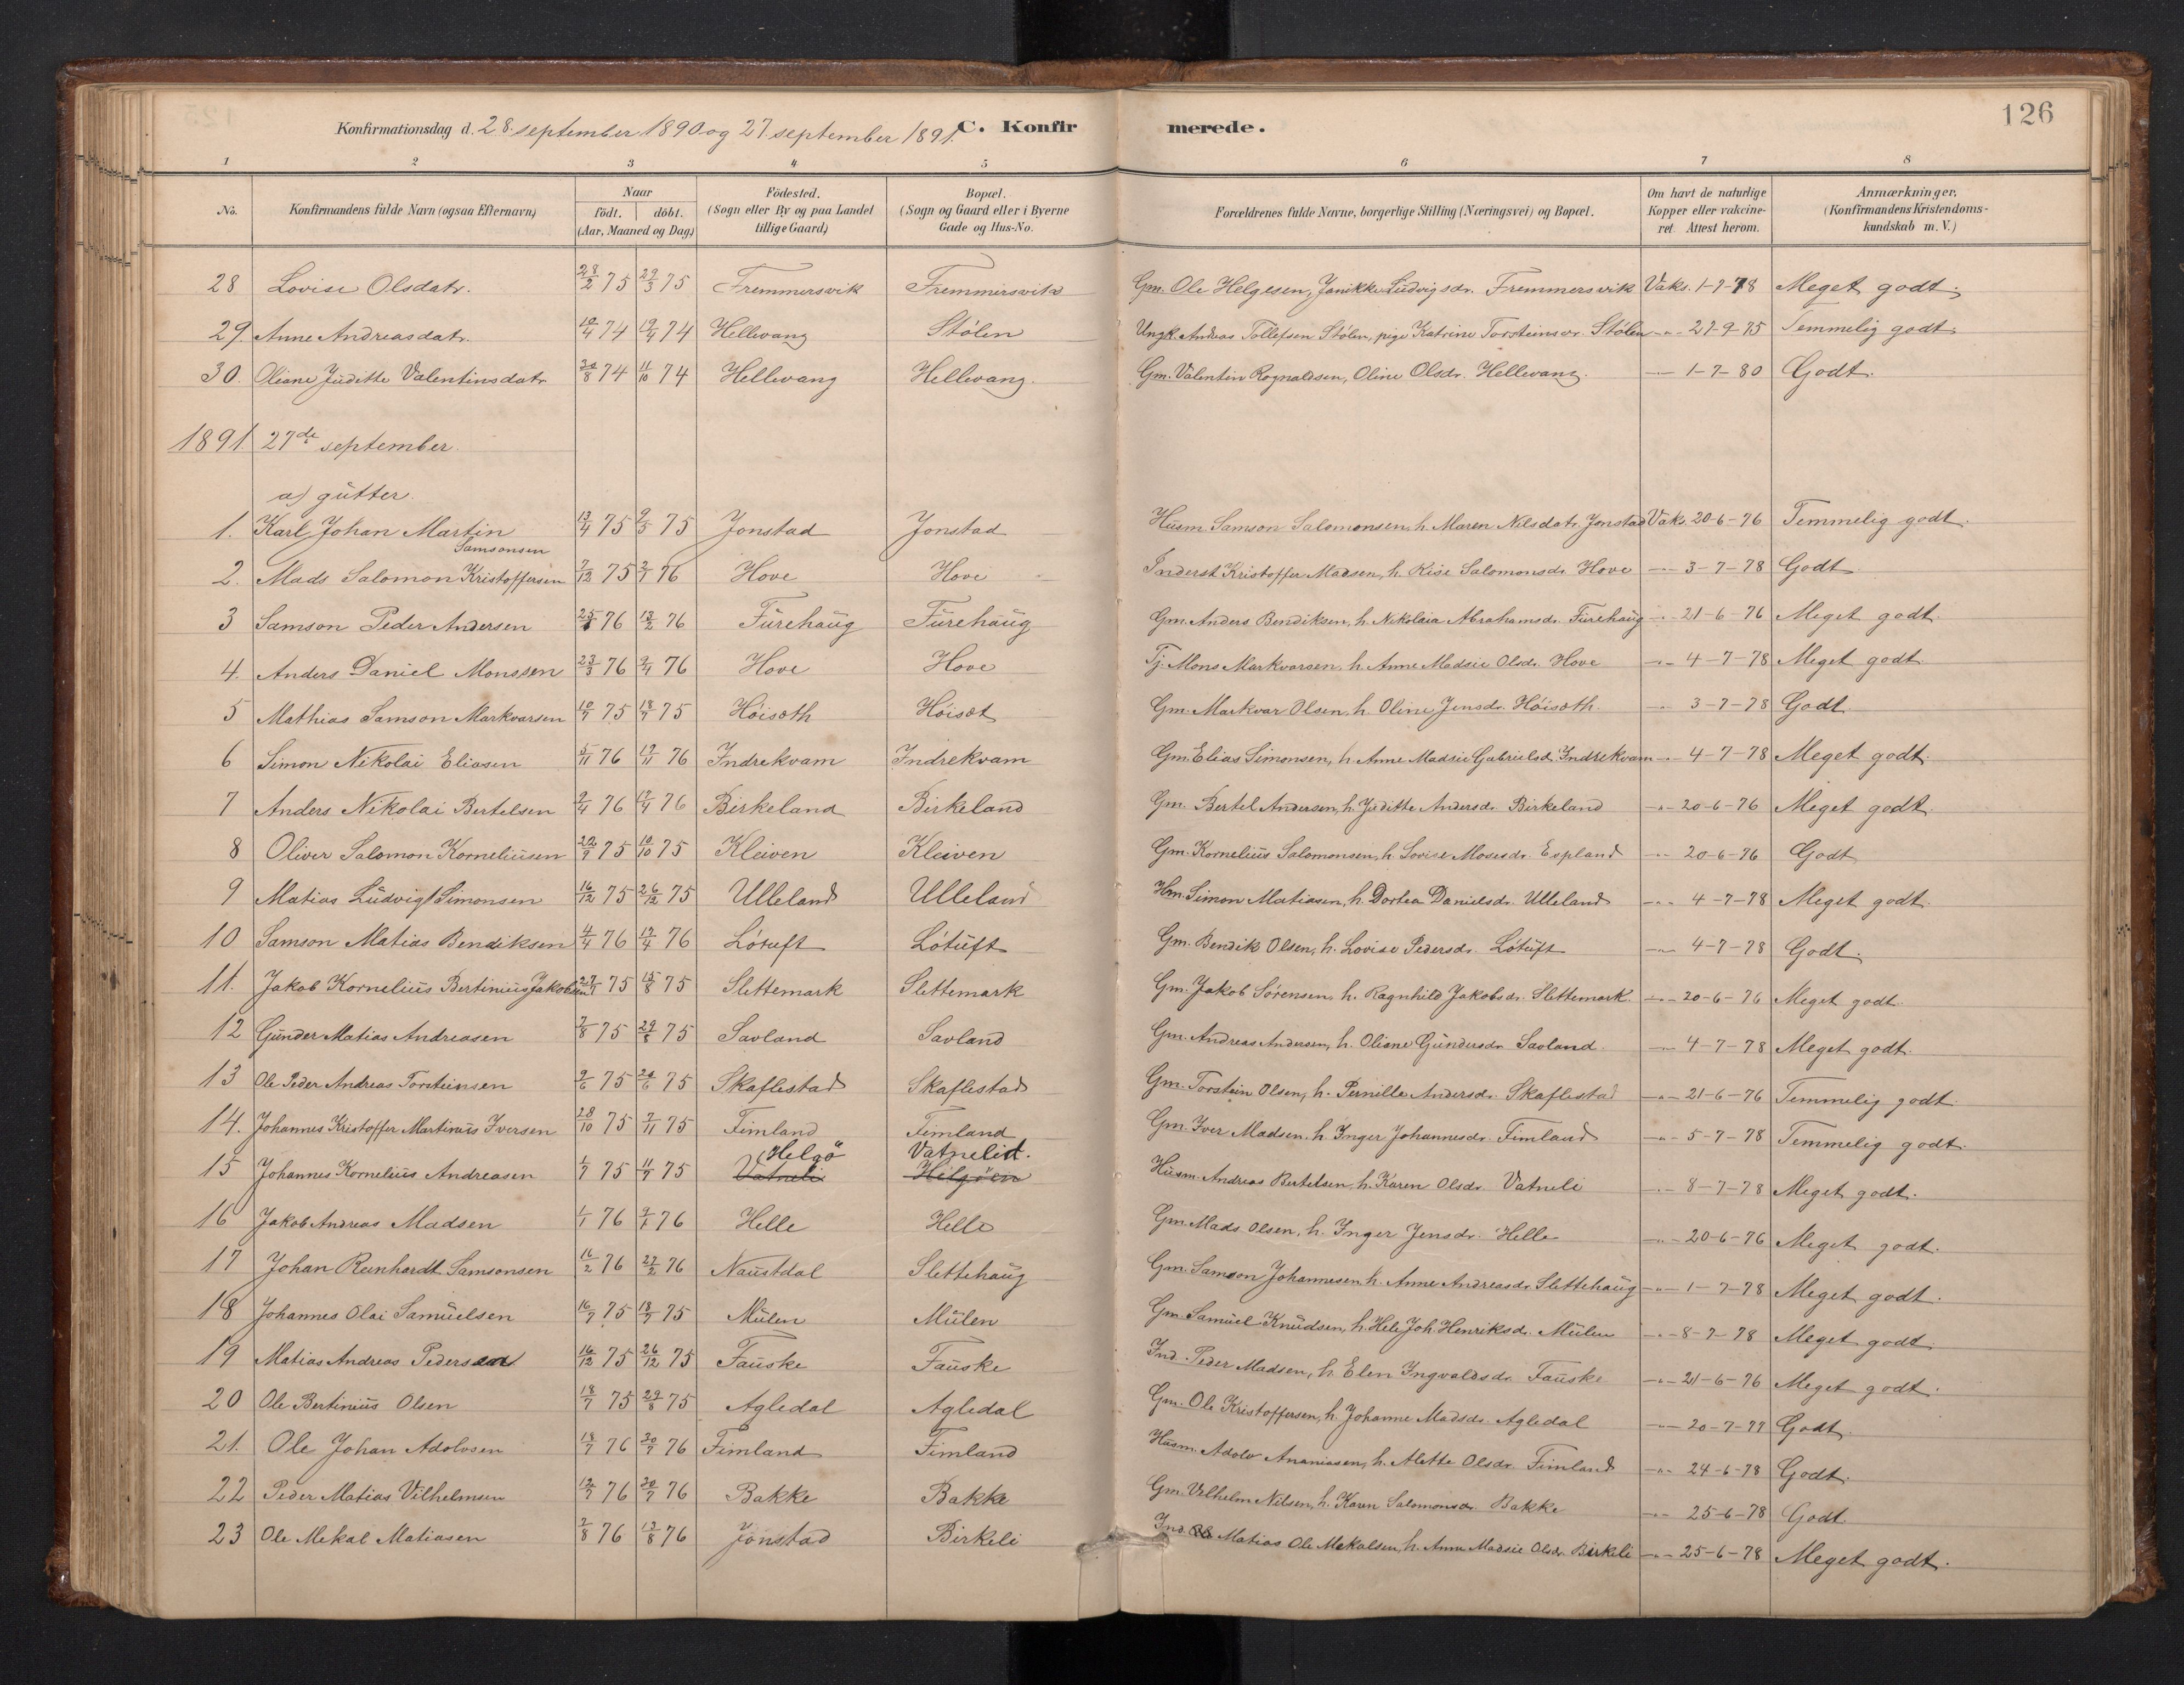 126
Konfirmationsdag d. 28. september 1890 og 27 september 1891. C. Konfirmerede.
1 2 3 4 5 6 7 8
No. Konfirmandens fulde Navn (ogsaa Efternavn) Naar födt. döbt. (Aar, Maaned og Dag) Födested. (Sogn eller By og paa Landet tillige Gaard) Bopæl. (Sogn og Gaard eller i Byerne Gade og Hus-No. Forældrenes fulde Navne, borgerlige Stilling (Næringsvei) og Bopæl. Om havt de naturlige Kopper eller vakcineret. Attest herom. Anmærkninger. (Konfirmandens Kristendomskundskab m. V.)
28 Lovise Olsdatr. 28/2 75 29/3 75 Fremmersvik Fremmersvik Gm. Ole Helgesen, Janikke Ludvigsdr. Fremmersvik Vaks. 1-7-78 Meget godt.
29. Anne Andreasdatr. 10/4 74 19/4 74 Hellevang Stölen Ungk. Andreas Tollefsen Stölen, pige Katrine Torsteinsdr. Stölen -"- 29-9-75 Temmelig godt.
30. Oliane Juditte Valentinsdatr. 30/8 74 11/10 74 Hellevang Hellevang. Gm. Valentin Rognaldsen, Oline Olsdr. Hellevang. -"- 1-7-80 Godt.
1891. 27de september.
a) gutter.
1. Karl Johan Martin Samsonsen 13/4 75 9/5 75 Jonstad Jonstad Husm. Samson Salomonsen, h. Maren Nilsdatr. Jonstad Vaks. 20-6-76 Temmelig godt.
2. Mads Salomon Kristoffersen 7/12 75 2/1 76 Hove Hove Inderst Kristoffer Madsen, h. Rise Salomonsdr. Hove -"- 3-7-78 Godt
3 Samson Peder Andersen 25/1 76 13/2 76 Furehaug Furehaug Gm. Anders Bendiksen, h. Nikolaia Abrahamsdr. Furehaug -"- 21-6-76 Meget godt.
4. Anders Daniel Monssen 23/3 76 9/4 76 Hove Hove Tj. Mons Markvarsen, h. Anne Madsie Olsdr. Hove -"- 4-7-78 Meget godt.
5 Mathias Samson Markvarsen 10/7 75 18/7 75 Höisæth Höisæt Gm. Markvar Olsen, h. Oline Jensdr. Höisæth. -"- 3-7-78 Godt.
6 Simon Nikolai Eliasen 5/11 76 19/11 76 Indrekvam Indrekvam Gm. Elias Simonsen, h. Anne Madsie Gabrielsd. Indrekvam -"- 4-7-78 Meget godt.
7 Anders Nikolai Bertelsen 2/4 76 17/4 76 Birkeland Birkeland Gm. Bertel Andersen, h. Juditte Andersdr. Birkeland -"- 20-6-76 Meget godt.
8 Oliver Salomon Korneliusen 22/9 75 10/10 75 Kleiven Kleiven Gm. Kornelius Salomonsen, h. Lovise Mosesdr. Espland -"- 20-6-76 Godt
9 Matias Ludvig Simonsen 16/12 75 26/12 75 Ulleland Ulleland Hm. Simon Matiasen, h. Dortea Danielsdr. Ulleland -"- 4-7-78 Meget godt.
10 Samson Matias Bendiksen 4/4 76 17/4 76 Lötuft Lötuft Gm. Bendik Olsen, h. Lovise Pedersdr. Lötuft -"- 4-7-78 Godt.
11. Jakob Kornelius Bertinius Jakobsen 27/7 75 15/8 75 Slettemark Slettemark Gm. Jakob Sörensen, h. Ragnhild Jakobsdr. Slettemark. -"- 20-6-76 Meget godt.
12 Gunder Matias Andreasen 7/8 75 29/8 75 Savland Savland Gm. Andreas Andersen, h. Oliane Gundersdr. Savland -"- 4-7-78 Meget godt.
13 Ole Peder Andreas Torsteinsen 9/6 75 20/6 75 Skaflestad Skaflestad Gm. Torstein Olsen, h. Pernille Andersdr. Skaflestad -"- 21-6-76 Temmelig godt.
14. Johannes Kristoffer Martinus Iversen 28/10 75 7/11 75 Fimland Fimland Gm. Iver Madsen, h. Inger Johannesdr. Fimland -"- 5-7-78 Temmelig godt.
15 Johannes Kornelius Andreasen 1/7 75 11/7 75 Helgö Vatneli Vatnelid. Helgöen Husm. Andreas Bertelsen, h. Karen Olsdr. Vatneli -"- 8-7-78 Meget godt.
16 Jakob Andreas Madsen 1/1 76 9/1 76 Helle Helle Gm. Mads Olsen, h. Inger Jensdr. Helle -"- 20-6-76 Meget godt.
17 Johan Reinhardt Samsonsen 16/2 76 27/2 76 Naustdal Slettehaug Gm. Samson Johannesen, h. Anne Andreasdr. Slettehaug -"- 1-7-78 Meget godt.
18 Johannes Olai Samuelsen 16/7 75 18/7 75 Mulen Mulen Gm. Samuel Knudsen, h. Hele Joh. Henriksdr. Mulen -"- 8-7-78 Meget godt.
19 Matias Andreas Pedersen 16/12 75 26/12 75 Fauske Fauske Ind. Peder Madsen, h. Elen Ingvaldsdr. Fauske -"- 21-6-76 Meget godt.
20 Ole Bertinius Olsen 18/7 75 29/8 75 Agledal Agledal Gm. Ole Kristoffersen, h. Johanne Madsdr. Agledal -"- 20-7-77 Godt.
21. Ole Johan Adolvsen 18/7 76 30/7 76 Fimland Fimland Husm. Adolv Ananiasen, h. Alette Olsdr. Fimland -"- 24-6-78 Godt.
22 Peder Matias Vilhelmsen 12/7 76 30/7 76 Bakke Bakke Gm. Vilhelm Nilsen, h. Karen Salomonsdr. Bakke -"- 25-6-78 Godt.
23 Ole Mekal Matiasen 2/8 76 13/8 76 Jonstad Birkeli Ind. Matias Ole Mekalsen, h. Anne Madsie Olsdr. Birkeli -"- 25-6-78 Meget godt.